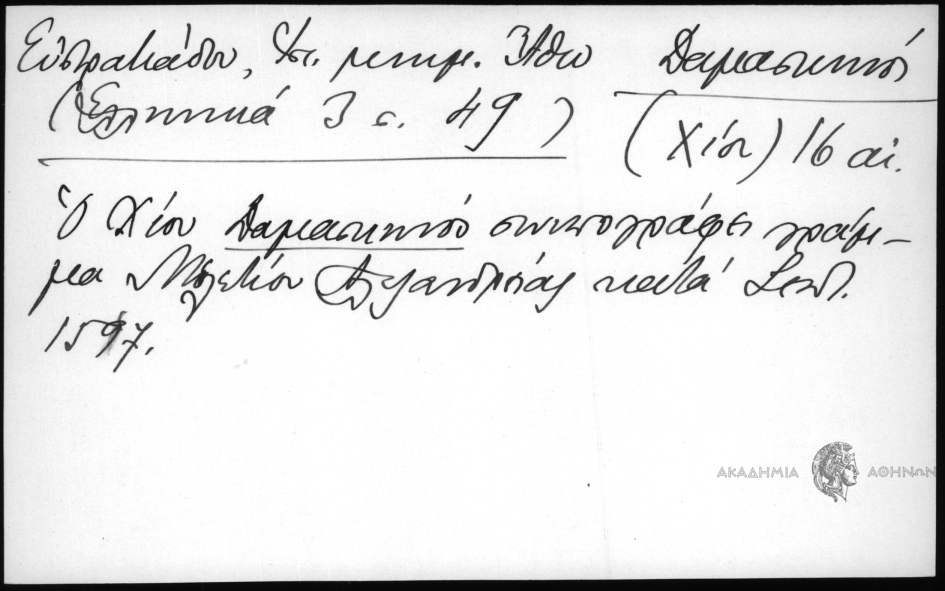 Εὐστρατιάδου, Ἱστ. μνημ. Ἄθω
(Ἑλληνικά 3 σ. 49)
Δαμασκηνός
(Χίου) 16 αἰ.
Ὁ Χίου Δαμασκηνός συνυπογράφει γράμ-
μα Μελετίου Ἀλεξανδρείας κατά Σεπτ.
1597.
ΑΚΑΔΗΜΙΑ ΑΘΗΝΩΝ